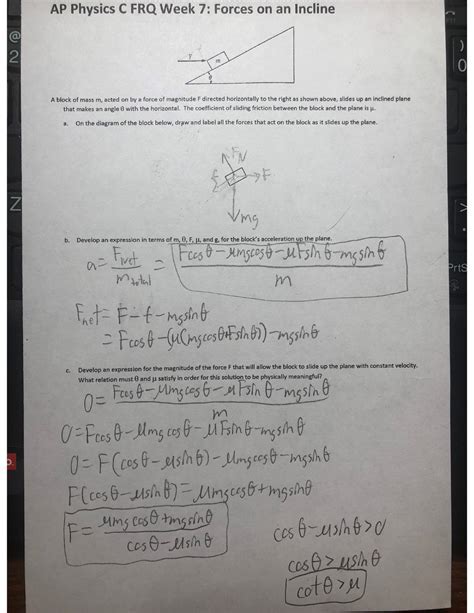 AP Physics C FRQ Week 7: Forces on an Incline
F
m
θ
A block of mass m, acted on by a force of magnitude F directed horizontally to the right as shown above, slides up an inclined plane
that makes an angle θ with the horizontal. The coefficient of sliding friction between the block and the plane is μ.
a. On the diagram of the block below, draw and label all the forces that act on the block as it slides up the plane.
FN
f
F
mg
b. Develop an expression in terms of m, θ, F, μ, and g, for the block's acceleration up the plane.
a = Fnet / mtotal = Fcosθ - μmgcosθ - μFsinθ - mgsinθ / m
Fnet = F - f - mgsinθ
= Fcosθ - (μ(mgcosθ + Fsinθ)) - mgsinθ
c. Develop an expression for the magnitude of the force F that will allow the block to slide up the plane with constant velocity.
What relation must θ and μ satisfy in order for this solution to be physically meaningful?
0 = Fcosθ - μmgcosθ - μFsinθ - mgsinθ / m
0 = Fcosθ - μmgcosθ - μFsinθ - mgsinθ
0 = F(cosθ - μsinθ) - μmgcosθ - mgsinθ
F(cosθ - μsinθ) = μmgcosθ + mgsinθ
F = μmgcosθ + mgsinθ / cosθ - μsinθ
cosθ - μsinθ > 0
cosθ > μsinθ
cotθ > μ
@
2
Z
)
0
PrtS